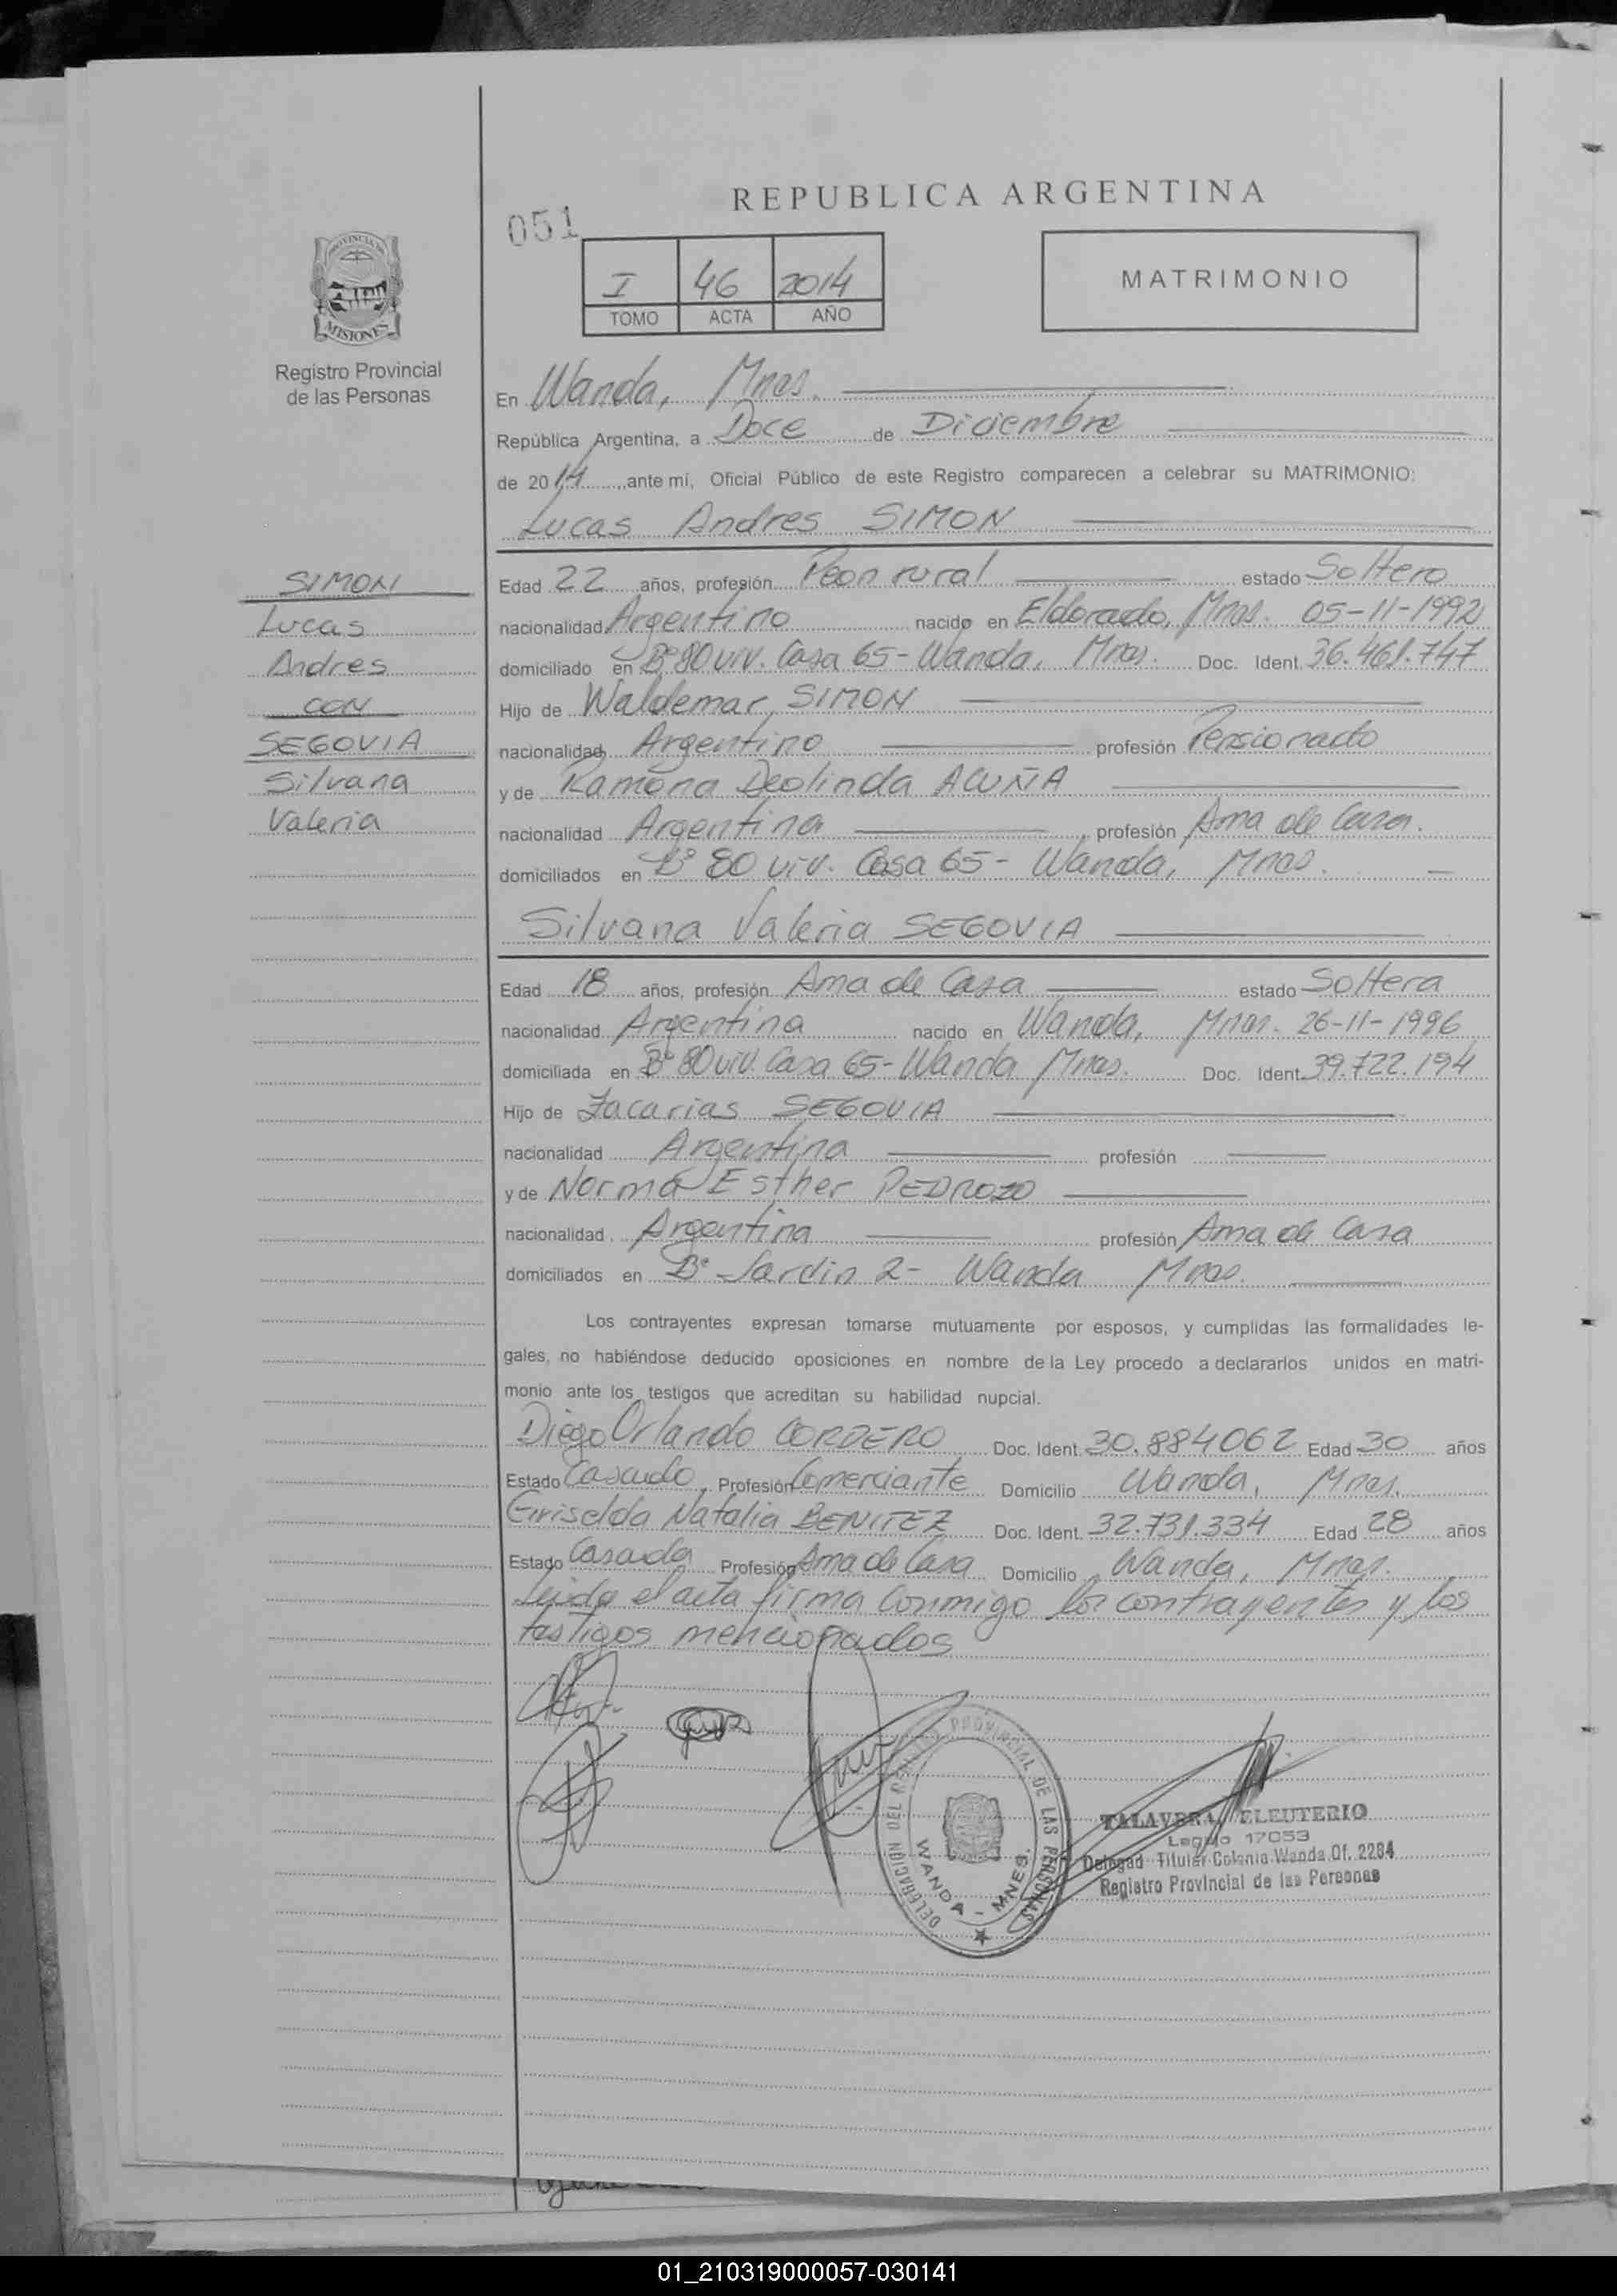 REPUBLICA ARGENTINA
051
I 46 2014
TOMO ACTA AÑO
MATRIMONIO
PROVINCIA DE
MISIONES
Registro Provincial
de las Personas
En Wanda, Mnes.
República Argentina, a Doce de Diciembre
de 2014, ante mí, Oficial Público de este Registro comparecen a celebrar su MATRIMONIO:
Lucas Andres SIMON
SIMON
Lucas
Andres
CON
SEGOVIA
Silvana
Valeria
Edad 22 años, profesión Peon rural estado Soltero
nacionalidad Argentino nacido en Eldorado, Mnes. 05-11-1992
domiciliado en B° 80 viv. Casa 65 - Wanda, Mnes. Doc. Ident. 36.461.747
Hijo de Waldemar SIMON
nacionalidad Argentino profesión Pensionado
y de Ramona Deolinda ACUÑA
nacionalidad Argentina profesión Ama de Casa.
domiciliados en B° 80 viv. Casa 65 - Wanda, Mnes.
Silvana Valeria SEGOVIA
Edad 18 años, profesión Ama de Casa estado Soltera
nacionalidad Argentina nacido en Wanda, Mnes. 26-11-1996
domiciliada en B° 80 viv. Casa 65 - Wanda Mnes. Doc. Ident. 39.722.194
Hijo de Zacarias SEGOVIA
nacionalidad Argentina profesión
y de Norma Esther PEDROZO
nacionalidad Argentina profesión Ama de Casa
domiciliados en B° Jardin 2 - Wanda Mnes.
Los contrayentes expresan tomarse mutuamente por esposos, y cumplidas las formalidades le-
gales, no habiéndose deducido oposiciones en nombre de la Ley procedo a declararlos unidos en matri-
monio ante los testigos que acreditan su habilidad nupcial.
Diego Orlando CORDERO Doc. Ident. 30.884062 Edad 30 años
Estado Casado Profesión Comerciante Domicilio Wanda, Mnes.
Griselda Natalia BENITEZ Doc. Ident. 32.731.334 Edad 28 años
Estado Casada Profesión Ama de Casa Domicilio Wanda, Mnes.
Leida el acta firma conmigo los contrayentes y los
testigos mencionados
DELEGACION DEL REGISTRO PROVINCIAL DE LAS PERSONAS
WANDA - MNES.
TALAVERA ELEUTERIO
Legajo 17053
Delegad Titular Colonia Wanda Of. 2284
Registro Provincial de las Personas
01_210319000057-030141